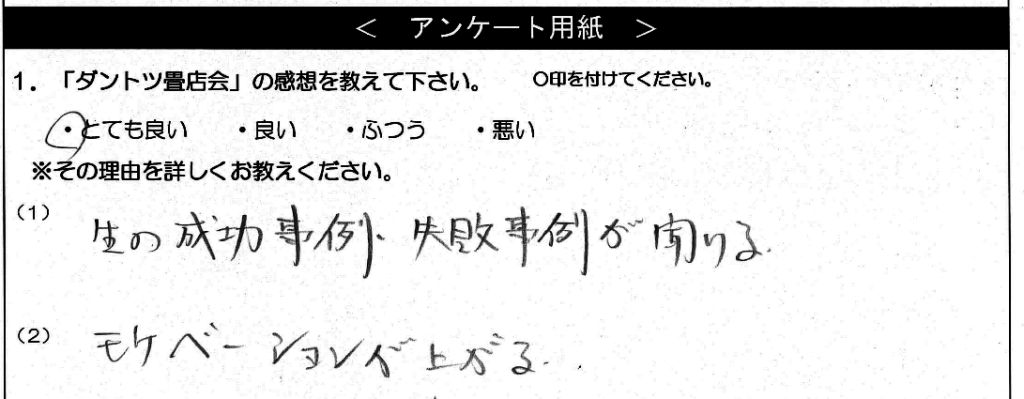 ＜ アンケート用紙 ＞
1．「ダントツ畳店会」の感想を教えて下さい。 〇印を付けてください。
・とても良い ・良い ・ふつう ・悪い
※その理由を詳しくお教えください。
(1) 生の成功事例、失敗事例が聞ける。
(2) モケベーションが上がる。